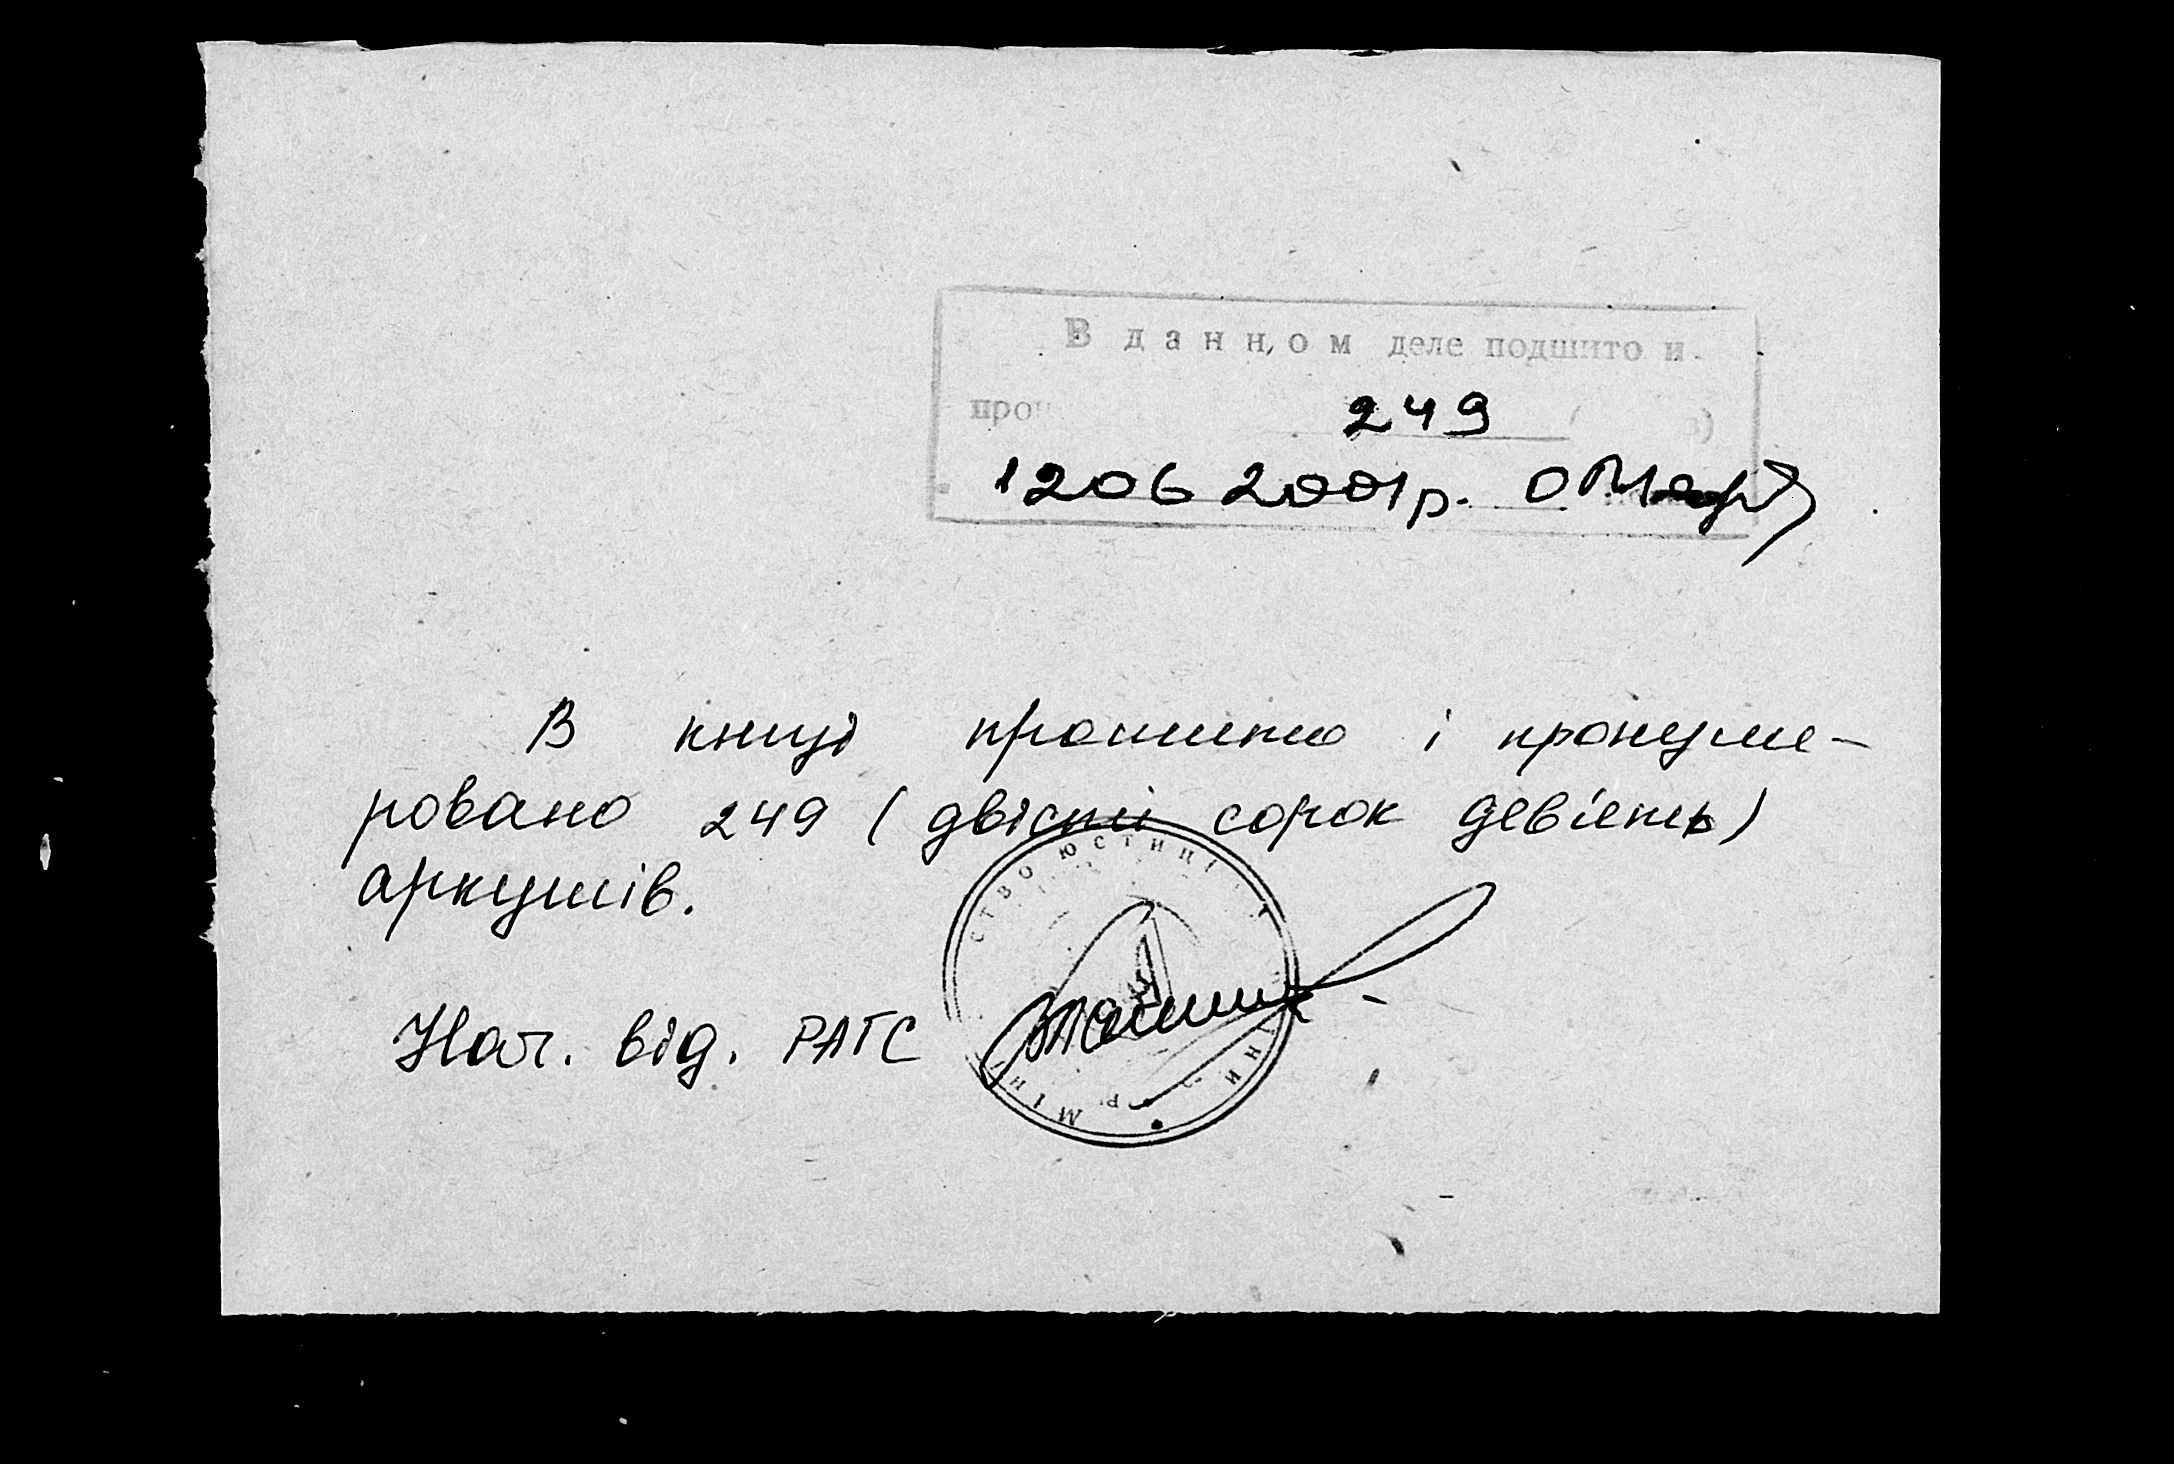 В данном деле подшито и
249
12 06 2001р.
В книзі прошито і пронуме-
ровано 249 (двісті сорок дев'ять)
аркушів.
Нач. від. РАГС
СТВО ЮСТИЦІЇ